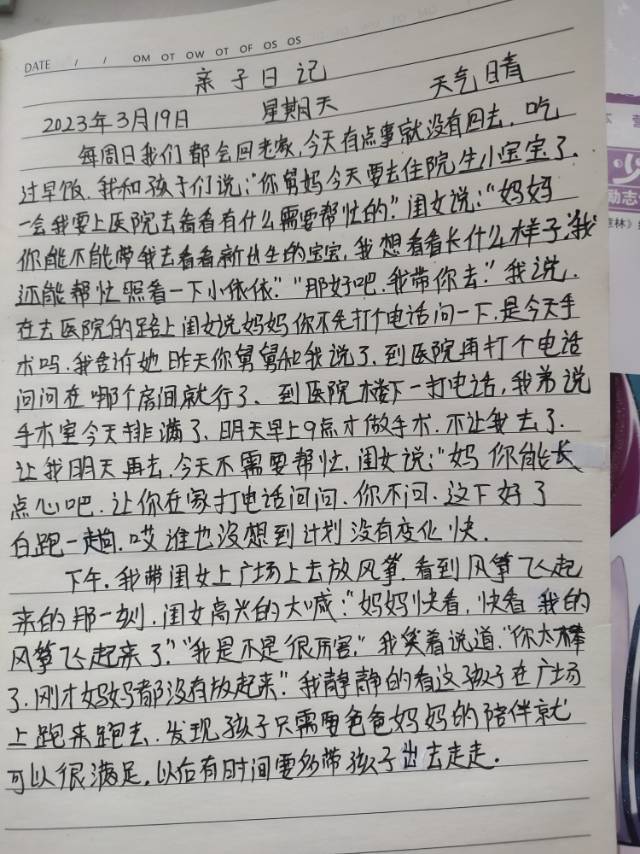 DATE / / OM OT OW OT OF OS OS
亲子日记
2023年3月19日 星期天 天气晴
每周日我们都会回老家,今天有点事就没有回去,吃
过早饭,我和孩子们说:“你舅妈今天要去住院生小宝宝了,
一会我要上医院去看看有什么需要帮忙的”。闺女说:“妈妈
你能不能带我去看看新出生的宝宝,我想看看长什么样子,我
还能帮忙照看一下小依依”。“那好吧,我带你去”我说,
在去医院的路上闺女说妈妈你不先打个电话问一下,是今天手
术吗,我告诉她昨天你舅舅和我说了,到医院再打个电话
问问在哪个房间就行了、到医院楼下一打电话,我弟说
手术室今天排满了,明天早上9点才做手术,不让我去了,
让我明天再去,今天不需要帮忙,闺女说:“妈 你能长
点心吧,让你在家打电话问问,你不问,这下好了
白跑一趟,哎谁也没想到计划没有变化快.
下午,我带闺女上广场上去放风筝,看到风筝飞起
来的那一刻,闺女高兴的大喊:“妈妈快看,快看 我的
风筝飞起来了”“我是不是很厉害”我笑着说道“你太棒
了,刚才妈妈都没有放起来”我静静的看这孩子在广场
上跑来跑去,发现孩子只需要爸爸妈妈的陪伴就
可以很满足,以后有时间要多带孩子出去走走.
励志